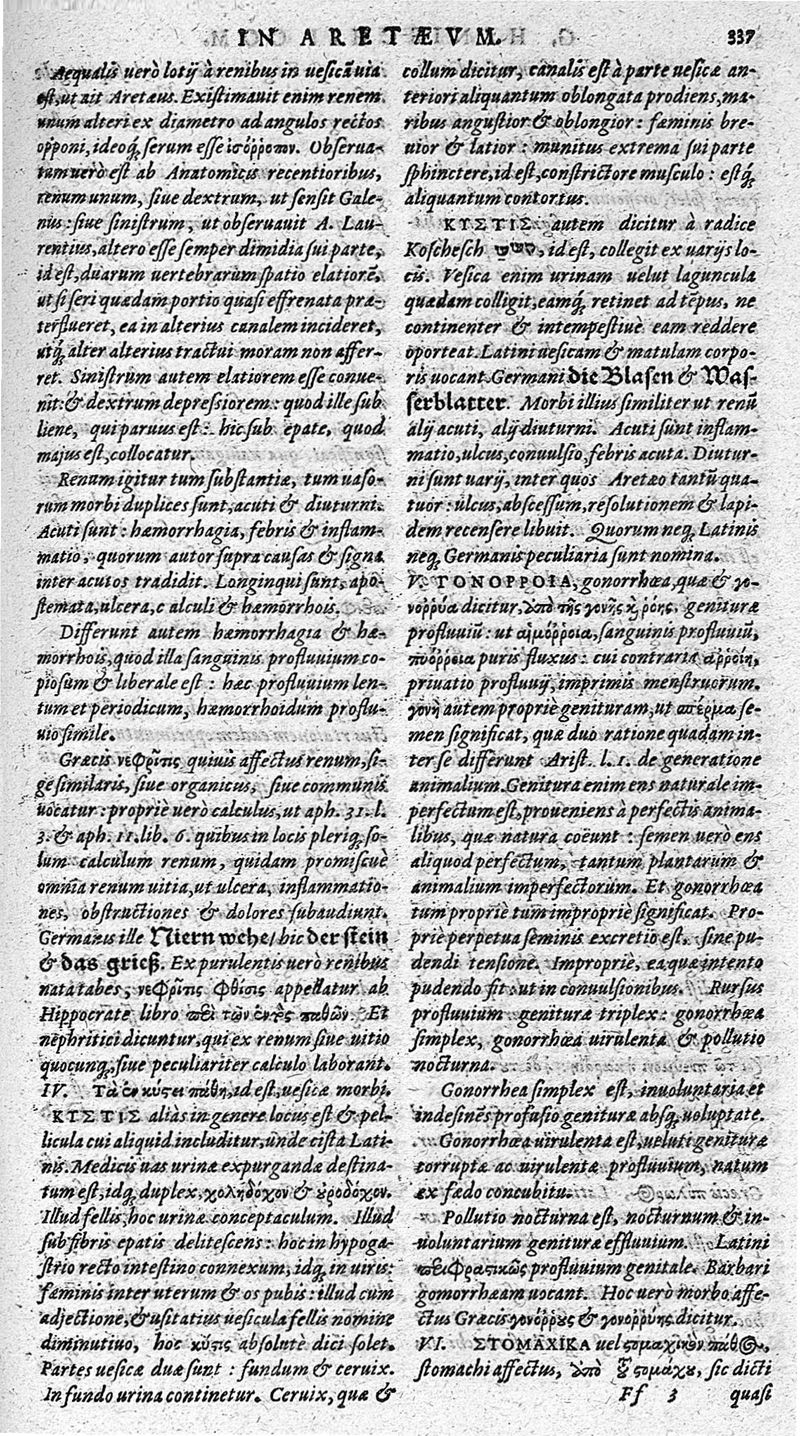 IN ARETÆVM.
337
Aequalis verò lotij à renibus in uesicā uia
est, ut ait Aretæus. Existimauit enim renem
unum alteri ex diametro ad angulos rectos
opponi, ideoq́; serum esse ἰσόῤῥοπον. Obserua-
tum uerò est ab Anatomicis recentioribus,
renum unum, siue dextrum, ut sensit Gale-
nus: siue sinistrum, ut obseruauit A. Lau-
rentius, altero esse semper dimidia sui parte,
id est, duarum uertebrarum spatio elatiorē,
ut si seri quædam portio quasi effrenata præ-
terflueret, ea in alterius canalem incideret,
utq́; alter alterius tractui moram non affer-
ret. Sinistrum autem elatiorem esse conue-
nit: & dextrum depressiorem: quod ille sub
liene, qui paruus est: hic sub epate, quod
majus est, collocatur.
Renum igitur tum substantiæ, tum uaso-
rum morbi duplices sunt, acuti & diuturni.
Acuti sunt: hæmorrhagia, febris & inflam-
matio, quorum autor supra causas & signa
inter acutos tradidit. Longinqui sunt, apo-
stemata, ulcera, c alculi & hæmorrhois.
Differunt autem hæmorrhagia & hæ-
morrhois, quod illa sanguinis profluuium co-
piosum & liberale est: hæc profluuium len-
tum et periodicum, hæmorrhoidum proflu-
uio simile.
Græcis νεφρῖτις quiuis affectus renum, si-
ge similaris, siue organicus, siue communis
uocatur: propriè uerò calculus, ut aph. 31. l.
3. & aph. 11. lib. 6. quibus in locis pleriq; so-
lum calculum renum, quidam promiscuè
omnia renum uitia, ut ulcera, inflammatio-
nes, obstructiones & dolores subaudiunt.
Germanis ille Niern wehe/ hic der stein
& das grieß. Ex purulentis uerò renibus
nata tabes, νεφρῖτις φθίσις appellatur ab
Hippocrate libro περὶ τῶν ἐντὸς παθῶν. Et
nephritici dicuntur, qui ex renum siue uitio
quocunq;, siue peculiariter calculo laborant.
IV. Τὰ ἐν κύστει πάθη, id est, uesicæ morbi.
ΚΥΣΤΙΣ aliàs in genere locus est & pel-
licula cui aliquid includitur, unde cista Lati-
nis. Medicis uas urinæ expurgandæ destina-
tum est, idq; duplex, χοληδόχον & οὐροδόχον.
Illud fellis, hoc urinæ conceptaculum. Illud
sub fibris epatis delitescens: hoc in hypoga-
strio recto intestino connexum, idq́; in uiris:
fæminis inter uterum & os pubis: illud cum
adjectione, & usitatius uesicula fellis nomine
diminutiuo, hoc κύστις absolutè dici solet.
Partes uesicæ duæ sunt: fundum & ceruix.
In fundo urina continetur. Ceruix, quæ &
collum dicitur, canalis est à parte uesicæ an-
teriori aliquantum oblongata prodiens, ma-
ribus angustior & oblongior: fæminis bre-
uior & latior: munitus extrema sui parte
sphinctere, id est, constrictore musculo: estq́;
aliquantum contortus.
ΚΥΣΤΙΣ autem dicitur à radice
Koschesch קשש, id est, collegit ex uarijs lo-
cis. Vesica enim urinam uelut laguncula
quædam colligit, eamq́; retinet ad tēpus, ne
continenter & intempestiuè eam reddere
oporteat. Latini uesicam & matulam corpo-
ris uocant. Germani die Blasen & Was-
serblatter. Morbi illius similiter ut renū
alij acuti, alij diuturni. Acuti sunt inflam-
matio, ulcus, conuulsio, febris acuta. Diutur-
ni sunt uarij, inter quos Aretæo tantū qua-
tuor: ulcus, abscessum, resolutionem & lapi-
dem recensere libuit. Quorum neq; Latinis
neq; Germanis peculiaria sunt nomina.
V. ΓΟΝΟΡΡΟΙΑ, gonorrhœa, quæ & γο-
νοῤῥύα dicitur, ἀπὸ τῆς γονῆς κ̀ ῥόης. genituræ
profluuiū: ut αἱμόῤῥοια, sanguinis profluuiū,
πυόῤῥοια puris fluxus: cui contraria ἀῤῥοίη,
priuatio profluuij, imprimis menstruorum.
γονὴ autem propriè genituram, ut σπέρμα se-
men significat, quæ duo ratione quadam in-
ter se differunt Arist. l. 1. de generatione
animalium. Genitura enim ens naturale im-
perfectum est, proueniens à perfectis anima-
libus, quæ natura coëunt: semen uerò ens
aliquod perfectum, tantum plantarum &
animalium imperfectorum. Et gonorrhœa
tum propriè tum impropriè significat. Pro-
priè perpetua seminis excretio est, sine pu-
dendi tensione. Impropriè, ea quæ intento
pudendo fit: ut in conuulsionibus. Rursus
profluuium genituræ triplex: gonorrhœa
simplex, gonorrhœa uirulenta & pollutio
nocturna.
Gonorrhea simplex est, inuoluntaria et
indesinēs profusio genituræ absq; uoluptate.
Gonorrhœa uirulenta est, ueluti genituræ
corruptæ ac uirulentæ profluuium, natum
ex fædo concubitu.
Pollutio nocturna est, nocturnum & in-
uoluntarium genituræ effluuium. Latini
περιφραστικῶς profluuium genitale. Barbari
gomorrhœam uocant. Hoc uerò morbo affe-
ctus Græcis γονόῤῥους & γονοῤῥύης dicitur.
VI. ΣΤΟΜΑΧΙΚΑ uel στομαχικὸν πάθος,
stomachi affectus, ἀπὸ τοῦ στομάχου, sic dicti
Ff 3
quasi